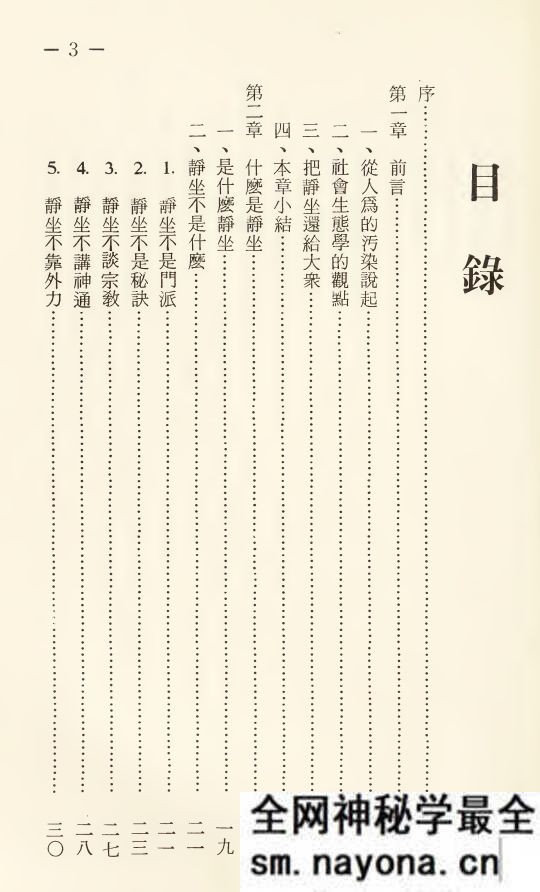 — 3 —
目錄
序
第一章 前言
一、從人爲的汚染說起
二、社會生態學的觀點
三、把靜坐還給大衆
四、本章小結
第二章 什麼是靜坐
一、是什麼靜坐 一九
二、靜坐不是什麼 二一
1. 靜坐不是門派 二一
2. 靜坐不是秘訣 二三
3. 靜坐不談宗教 二七
4. 靜坐不講神通 二八
5. 靜坐不靠外力 三〇
全网神秘学最全
sm.nayona.cn